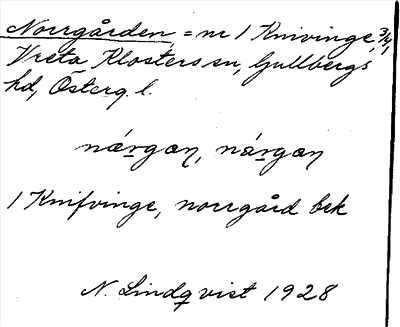 Norrgården = nr 1 Knivinge, 3/4 1,
Vreta Klosters sn, Gullbergs
hd, Österg. l.
nærgan, nárgan
1 Knifvinge, norrgård bek
N. Lindqvist 1928